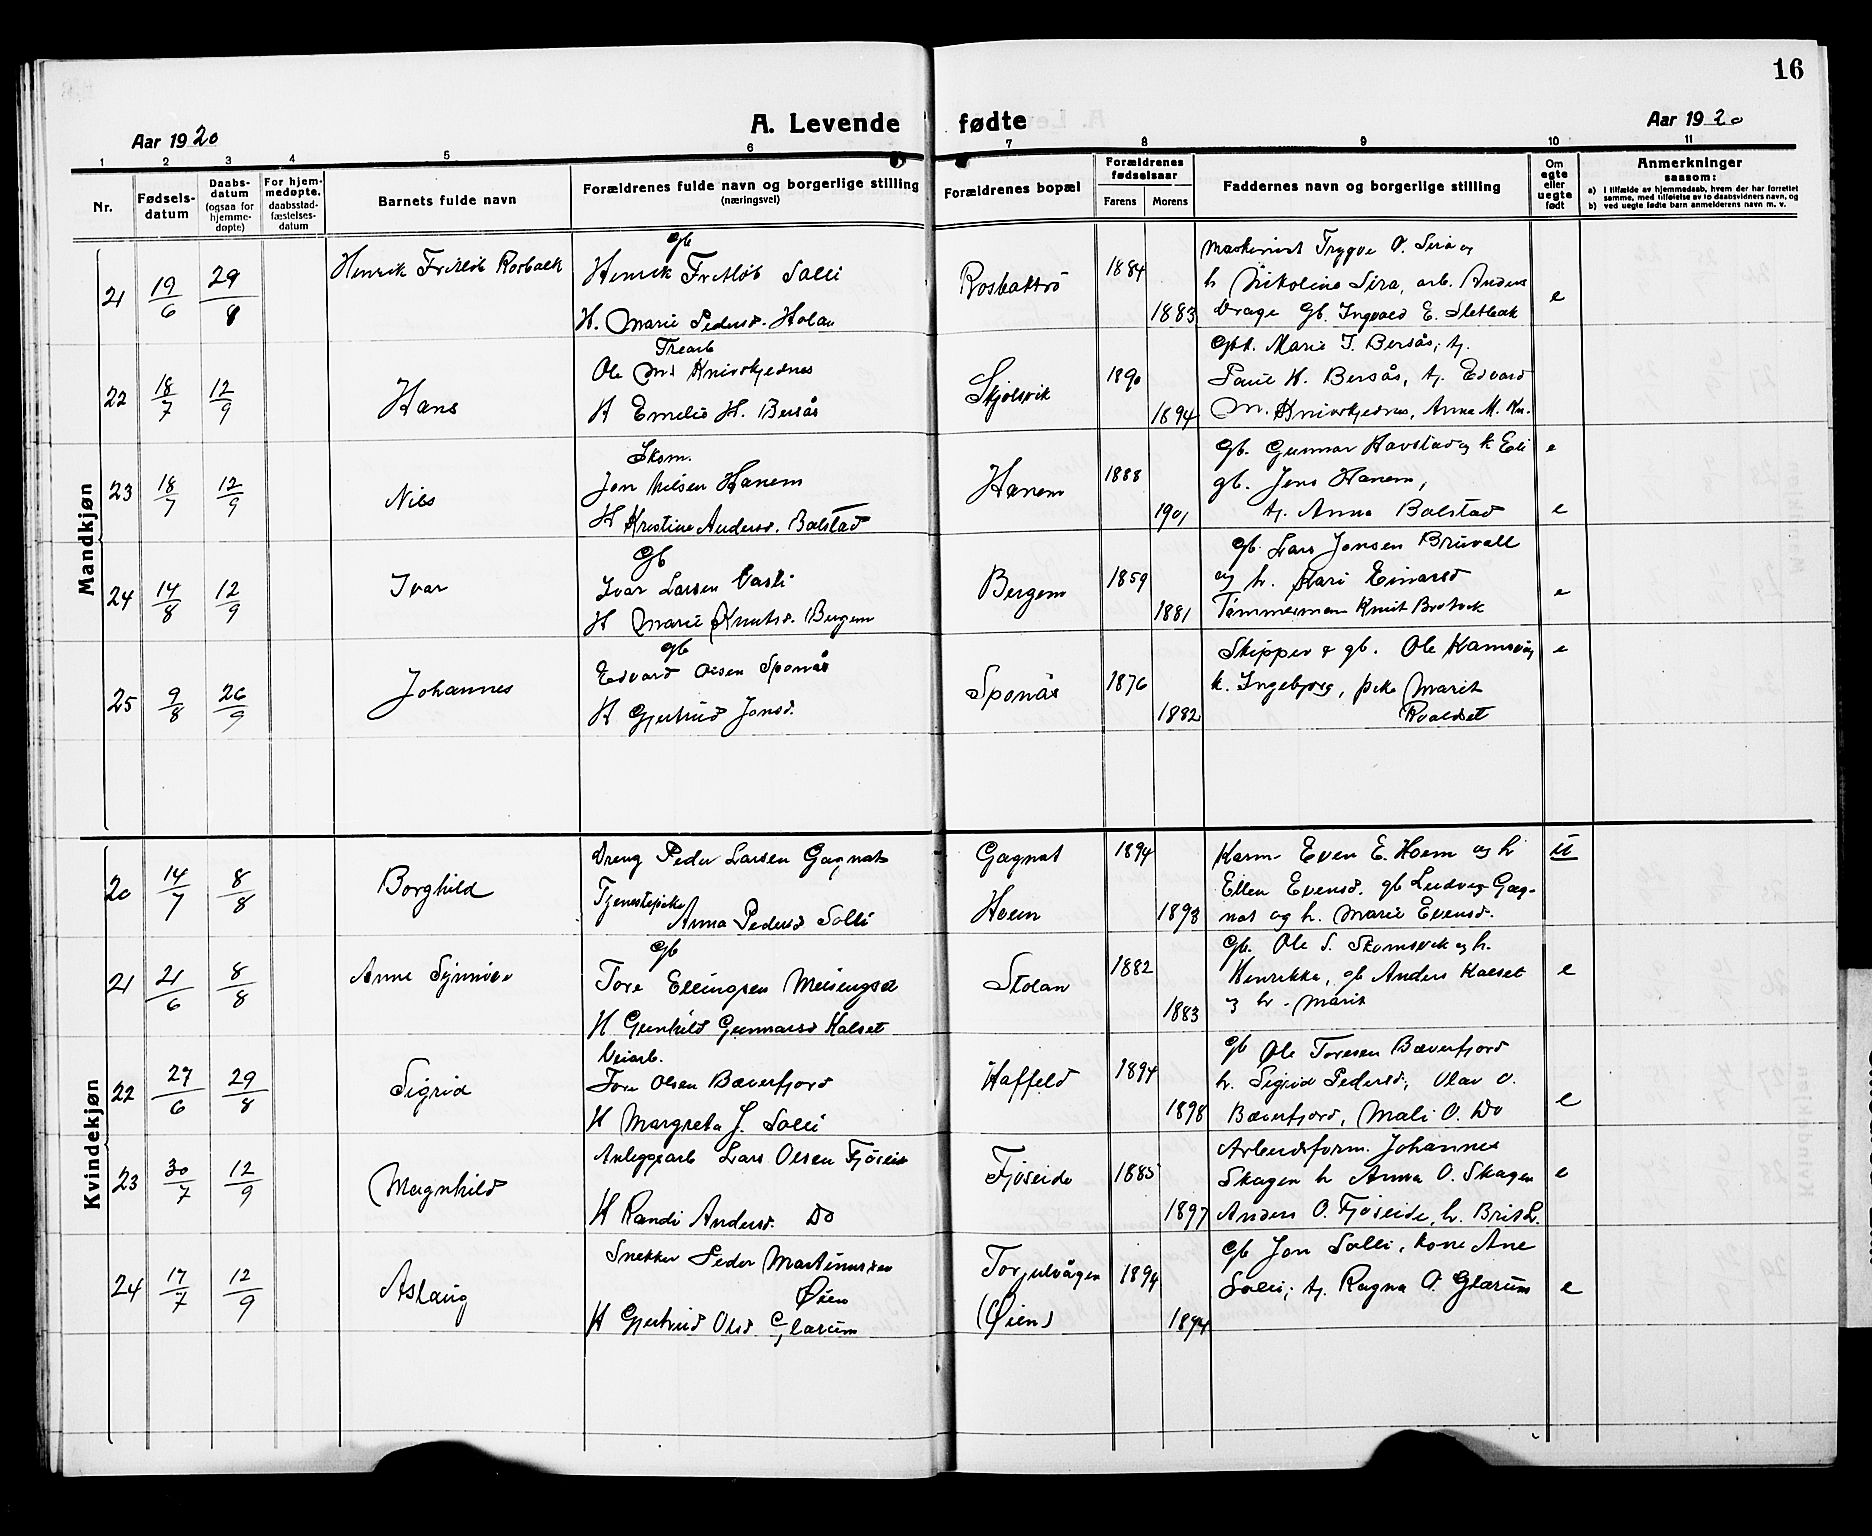 16
Aar 1920
A. Levende fødte
Aar 1920
1 2 3 4 5 6 7 8 9 10 11
Nr.
Fødsels-
datum
Daabs-
datum
(ogsaa for
hjemme-
døpte)
For hjem-
medøpte.
daabsstad-
fæstelses-
datum
Barnets fulde navn
Forældrenes fulde navn og borgerlige stilling
(næringsvei)
Forældrenes bopæl
Forældrenes
fødselsaar
Farens Morens
Faddernes navn og borgerlige stilling
Om
egte
eller
uegte
født
Anmerkninger
saasom:
a) I tilfælde av hjemmedaab, hvem der har forrettet
samme, med tilføielse av to daabsvidners navn, og
b) ved uegte fødte barn anmelderens navn m. v.
Mandkjøn
21 19/6 29/8 Henrik Fritløb Rosbakk
Gb
Henrik Fritløb Solli
H. Marie Pedersd. Holan
1884
1883
Maskinist Trygve O. Sira og
h Nikoline Sira, arb. Anders
Drage Gb. Ingvald E. Sletbak
e
22 18/7 12/9 Hans
Trearb
Ole Knivskjednes
H Emelie H. Bersås
Skjølsvik
1890
1894
Gbk. Marie I. Bersås, tj.
H. Bersås, tj. Edvard
M. Knivskjednes, Anna M. Kn.
e
23 18/7 12/9 Nils
Skom.
Jon Nilsen Hanem
H Kristine Andersd. Bolstad
Hanem
1888
1901
gb. Gunnar Havstad og k Eli
gb. Jens Hanem,
tj. Anna Bolstad
e
24 14/8 12/9 Ivar
Gb
Ivar Larsen Vasli
H Marie Knutsd. Bergem
Bergem
1859
1881
gb. Lars Jonsen Bruvoll
og h. Kari Einarsd
Tømmermann Knut
e
25 9/8 26/9 Johannes
gb
Edvard Olsen Sponås
H Gjertrud Jonsd.
Sponås
1876
1882
Skipper & gb. Ole Kamsvåg
k. Ingebjørg, pike Marit
Kvalset
e
Kvindekjøn
20 14/7 8/8 Borghild
Dreng Peder Larsen Gagnat
Tjenestepike
Anna Pedersd Solli
Gagnat
Hoem
1894
1893
Karm Even E. Hoem og h
Ellen Evensd. gb Ludvig Gag-
nat og h. Marie Evensd.
u
21 21/6 8/8 Anne Synnøve
Gb
Tore Ellingsen Meisingset
H Gunhild Gunnarsd Kalset
Stolan
1882
1883
Gb. Ole S. Skomsvik og h.
Henrikka, gb Anders Kalset
og h. Marit
e
22 27/6 29/8 Sigrid
Veiarb.
Tore Olsen Bæverfjord
H Margreta J. Solli
Haffeld
1894
1898
Gb Ole Toresen Bæverfjord
h. Sigrid Pedersd, Olav O.
Bæverfjord, Mali O. Do
e
23 30/7 12/9 Magnhild
Anleggsarb Lars Olsen Fjøseid
H Randi Andersd. Do
Fjøseide
1885
1897
Arbeidsform. Johannes
Skagen h Anna O. Skagen
Anders O. Fjøseide, h. Brit L.
e
24 17/7 12/9 Aslaug
Snekker Peder Martinussen
Øien
H Gjertrud Olsd Glærum
Torjulvågen
(Øien)
1894
1894
Gb Jon Solli, kone Ane
Solli, tj. Ragna O. Glærum
e